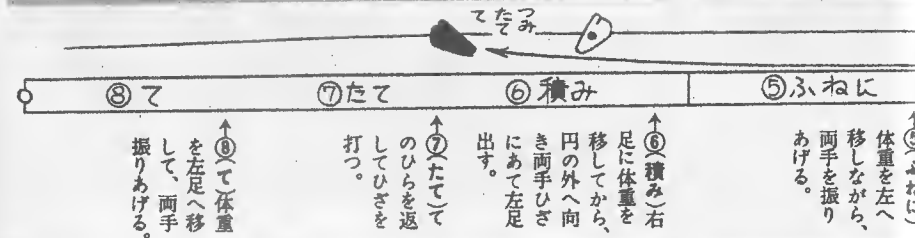 つみ
たて
て
⑤ふねに
⑥積み
⑦たて
⑧て
体重を左へ
移しながら、
両手を振り
あげる。
⑥(積み)右
足に体重を
移してから、
円の外へ向
き両手ひざ
にあて左足
出す。
⑦(たて)て
のひらを返
してひざを
打つ。
⑧(て)体重
を左足へ移
して、両手
振りあげる。